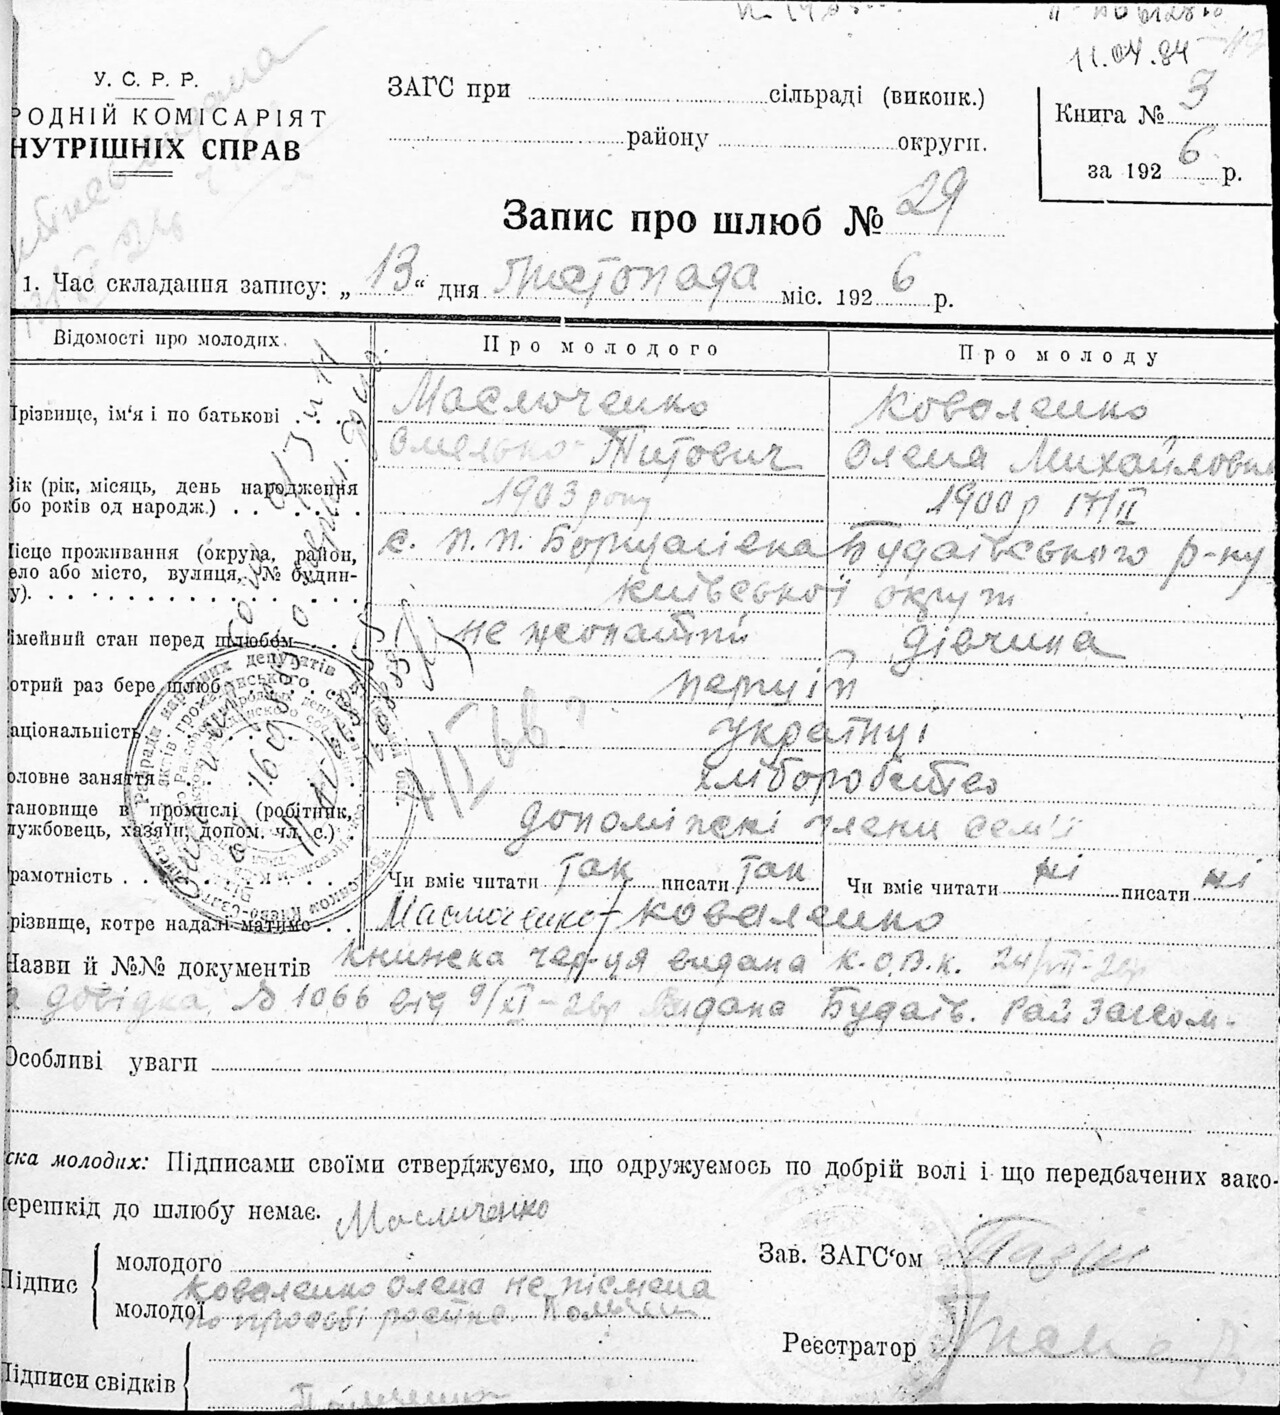 11.04.84
У. С. Р. Р.
РОДНІЙ КОМІСАРІЯТ
НУТРІШНІХ СПРАВ
ЗАГС при сільраді (виконк.)
району округи.
Книга № 3
за 1926 р.
Запис про шлюб № 29
1. Час складання запису: „13“ дня Листопада міс. 1926 р.
Відомості про молодих. Про молодого Про молоду
Прізвище, ім'я і по батькові Маслюченко Коваленко
Омелько Титович Олена Михайловна
Вік (рік, місяць, день народження 1903 року 1900 р 17/II
або років од народж.)
місце проживання (округа, район, с. П. П. Борщагівка Будаївського р-ну
село або місто, вулиця, № будин-
у). Київської округи
імейний стан перед шлюбом не жонатий дівчина
отрий раз бере шлюб перший
аціональність українці
оловне заняття хліборобство
тановище в промислі (робітник,
лужбовець, хазяїн, допом. чл. с.) допоміжні члени сем'ї
рамотність Чи вміє читати так писати так Чи вміє читати ні писати ні
різвище, котре надалі матимо Маслюченко Коваленко
Назви й №№ документів книжка чер-ця видана К.О.В.К. 24/VII-26р
а довідка № 1066 від 9/XI-26р видана Будаїв. Рай Загсом
Особливі уваги
ска молодих: Підписами своїми стверджуємо, що одружуємось по добрій волі і що передбачених зако-
ерешкід до шлюбу немає. Маслюченко
Підпис молодого
Коваленко Олена не пісмена
молодої по просьбі
Зав. ЗАГС'ом
Реєстратор
Підписи свідків